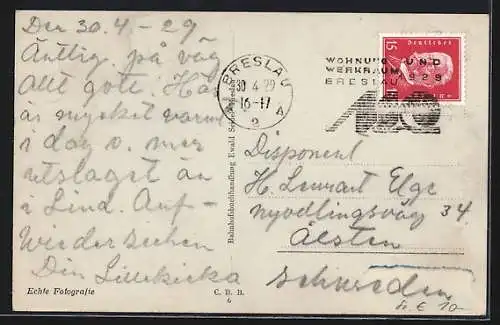 Den 30.4-29
Äntlig. på väg
Allt gott. Här
är mycket varmt
i dag o. mer
utslaget än
i Lund. Auf-
Wiedersehen
Din Lillekicka
Echte Fotografie
C. B. B.
6
Bahnhofsbuchhandlung Ewald
BRESLAU
30.4.29
16-17
2
A
WOHNUNG UND
WERKRAUM
BRESLAU 1929
15
Deutsches
Disponent
H. Lennart Elge
nyodlingsväg 34
Ålsten
Schweden